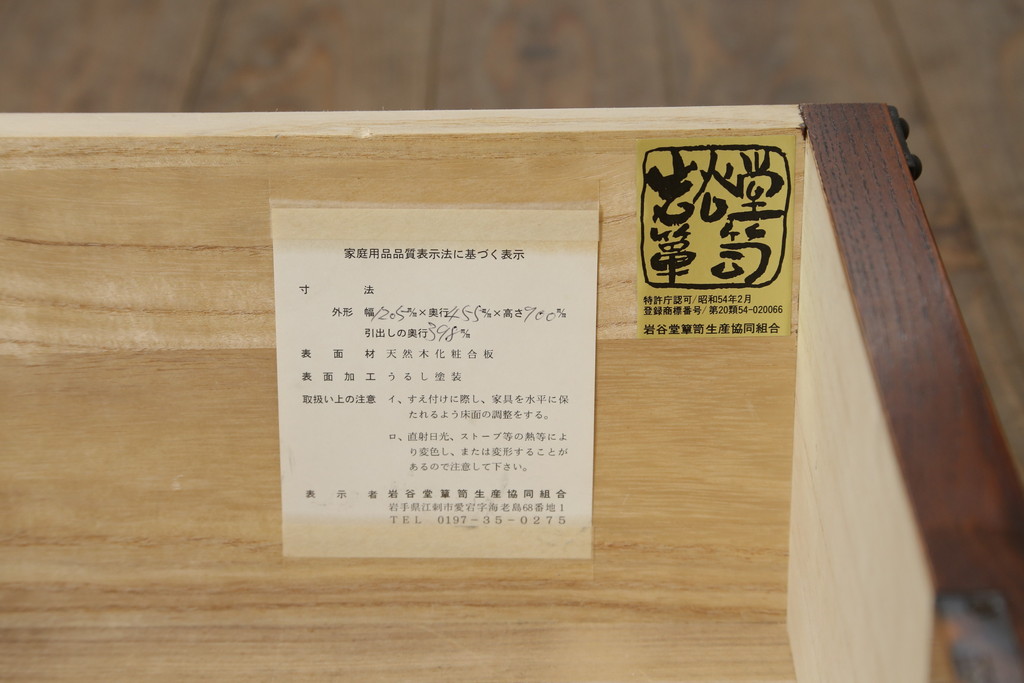 家庭用品品質表示法に基づく表示
寸法
外形 幅1205㎜×奥行455㎜×高さ900㎜
引出しの奥行398㎜
表面材 天然木化粧合板
表面加工 うるし塗装
取扱い上の注意 イ、すえ付けに際し、家具を水平に保
たれるよう床面の調整をする。
ロ、直射日光、ストーブ等の熱等によ
り変色し、または変形することが
あるので注意して下さい。
表示者 岩谷堂簞笥生産協同組合
岩手県江刺市愛宕字海老島68番地1
TEL 0197-35-0275
岩谷堂
簞笥
特許庁認可/昭和54年2月
登録商標番号/第20類54-020066
岩谷堂簞笥生産協同組合